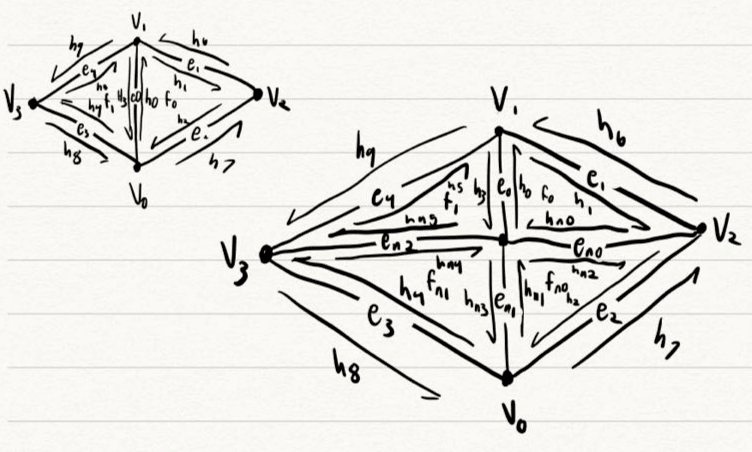 V1
h9 h6
e4 e1
h1
V3 h4 f1 h3 e0 h0 f0 V2
h2
e3
h8 h7
V0
V1
h9 h6
e4 h5 h3 e0 h0 f0 e1
f1 h1
hn5 hn0 V2
V3 en2 en0
hn4 hn2
h4 fn1 hn3 en1 hn1 fn0 h2
e3 e2
h8 h7
V0